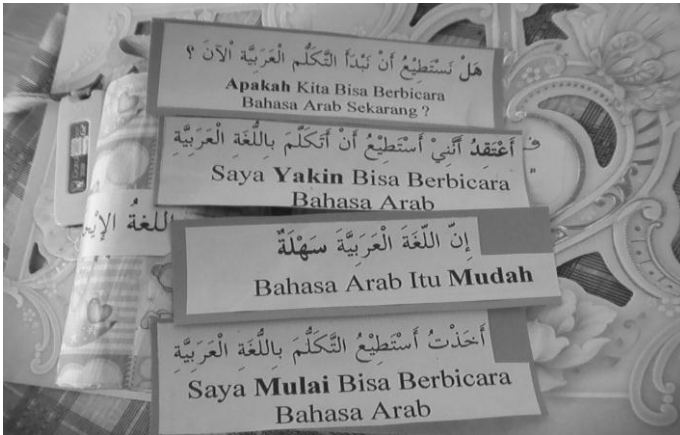 هَلْ نَسْتَطِيْعُ أَنْ نَبْدَأَ التَّكَلُّم الْعَرَبِيَّة اْلآنَ ؟
Apakah Kita Bisa Berbicara
Bahasa Arab Sekarang ?
أَعْتَقِدُ أَنَّنِيْ أَسْتَطِيْعُ أَنْ أَتَكَلَّمَ بِاللُّغَةِ الْعَرَبِيَّةِ
Saya Yakin Bisa Berbicara
Bahasa Arab
اللغةُ
إِنّ اللّغَةَ الْعَرَبِيَّةَ سَهْلَةٌ
Bahasa Arab Itu Mudah
أَخَذْتُ أَسْتَطِيْعُ التَّكَلُّمَ بِاللُّغَةِ الْعَرَبِيَّةِ
Saya Mulai Bisa Berbicara
Bahasa Arab